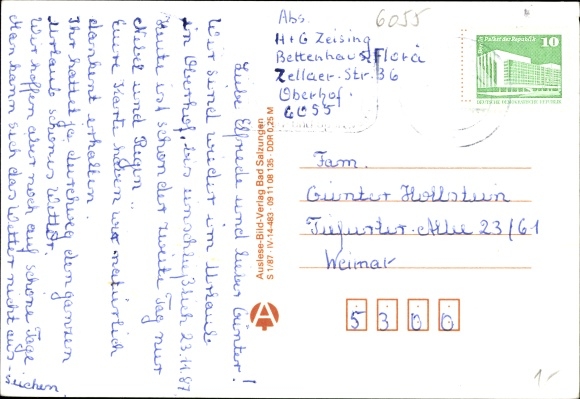 Abs.
H+G Zeising
Bettenhaus Flora
Zellaer-Str. 36
Oberhof.
6055
6055
Palast der Republik
10
DEUTSCHE DEMOKRATISCHE REPUBLIK
Fam.
Günter Hollstein
Tiefurter-Allee 23/61
Weimar
5300
Auslese-Bild-Verlag Bad Salzungen
S 1/87 · IV-14-483 · 09 11 08 135 · DDR 0,25 M
Liebe Elfriede und lieber Günter!
Wir sind wieder im Urlaub
in Oberhof, bis einschließlich 23.11.87.
Heute ist schon der zweite Tag nur
Nebel und Regen.
Eure Karte haben wir natürlich
dankend erhalten.
Ihr hattet ja durchweg den ganzen
Urlaub schönes Wetter.
Wir hoffen aber noch auf schöne Tage.
Man kann sich das Wetter nicht aus-
suchen.
1,-